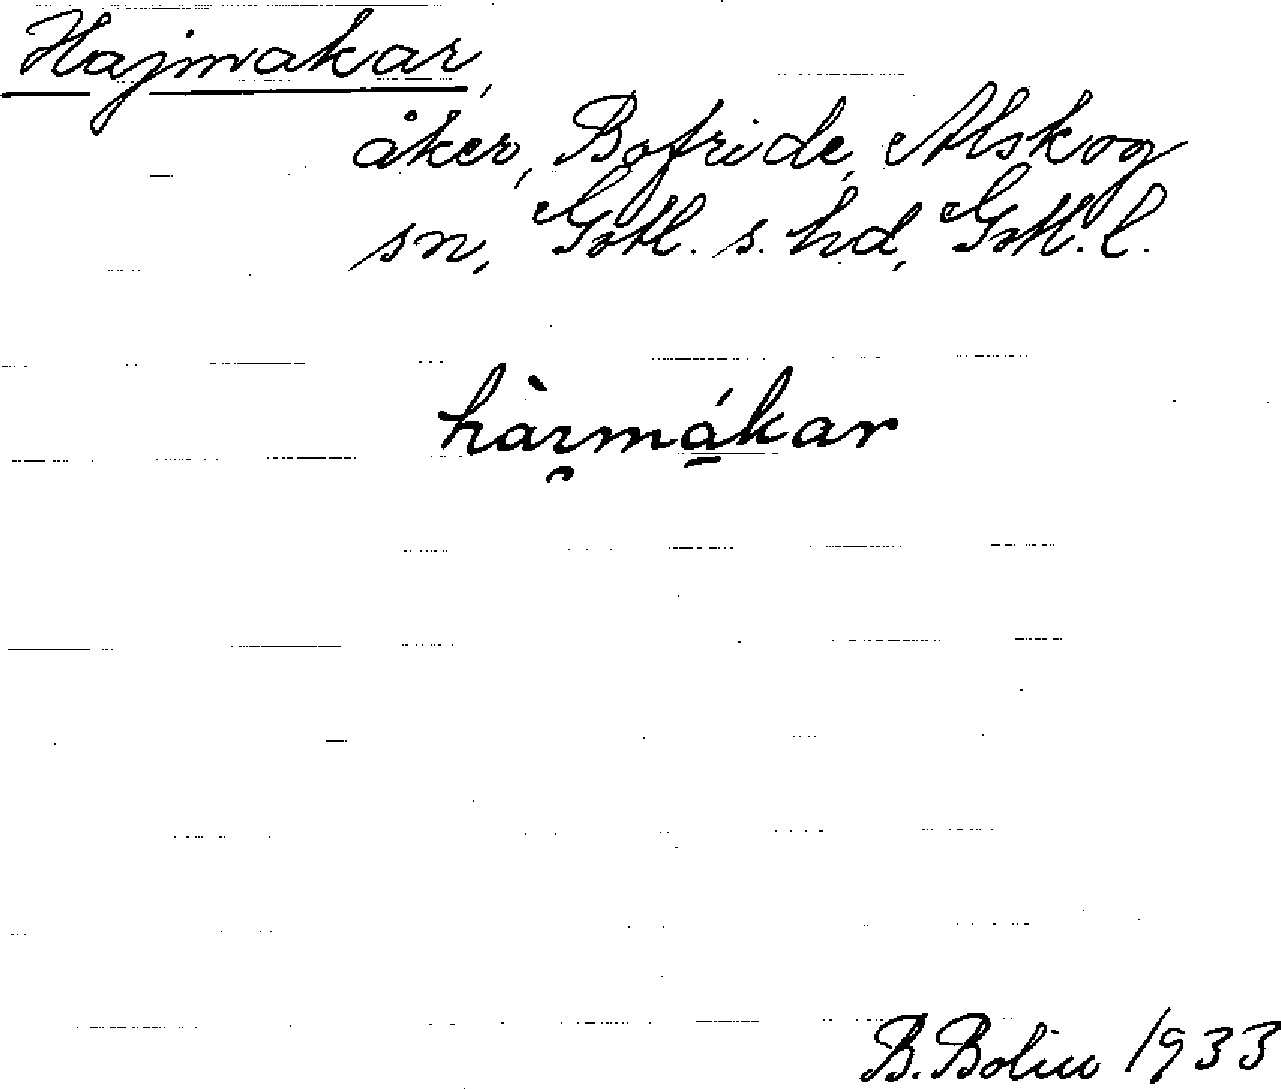 Hajmakar,
åker, Bofride, Alskog
sn, Gotl. s. hd, Gotl. l.
hàɪ̯má̱kar
B. Bolin 1933